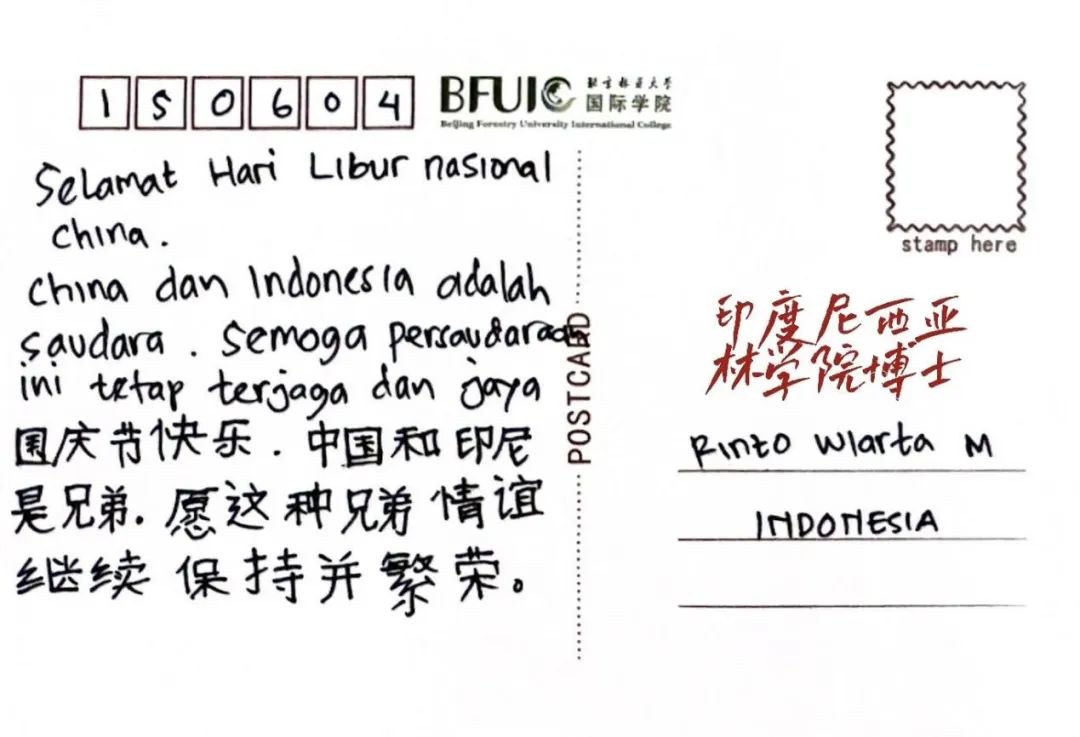 150604
BFUIC
北京林业大学
国际学院
Beijing Forestry University International College
Selamat Hari Libur nasional
china.
china dan Indonesia adalah
saudara. Semoga persaudaraan
ini tetap terjaga dan jaya
国庆节快乐. 中国和印尼
是兄弟. 愿这种兄弟情谊
继续保持并繁荣。
POSTCARD
stamp here
印度尼西亚
林学院博士
Rinto Wiarta M
INDONESIA